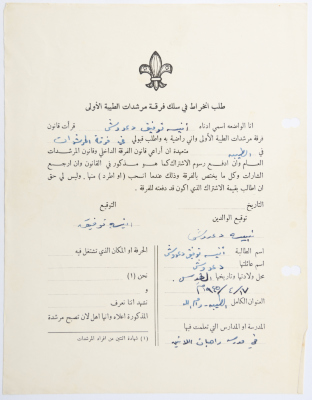 طلب انخراط في سلك فرقة مرشدات الطيبة الأولى
انا الواضعه اسمي ادناه أنيسه توفيق دعدوش قرأت قانون
فرقة مرشدات الطيبة الأولى واني راضية به واطلب قبولي في فرقة المرشدات
في الطيبه متعهدة ان أراعي قانون الفرقة الداخلي وقانون المرشدات
العام وأن ادفع رسوم الاشتراك كما هو مذكور في القانون وان ارجع
الشارات وكل ما يختص بالفرقة وذلك عندما انسحب (او اطرد) منها، وليس لي حق
ان اطالب بقيمة الاشتراك الذي اكون قد دفعته للفرقة.
التاريخ
التوقيع
توقيع الوالدين
أنيسه توفيق
اسم الطالبة أنيسه توفيق دعدوش
اسم عائلتها دعدوش
محل ولادتها وتاريخها القدس
العنوان الكامل الطيبه رام الله
المدرسة او المدارس التي تعلمت فيها
في مدرسة راهبات اللاتين
الحرفة او المكان الذي تشتغل فيه
نحن (١)
و
نشهد أننا نعرف
المذكورة اعلاه وانها اهل لان تصبح مرشدة
(١) شهادة اثنتين من افراد المرشدات.